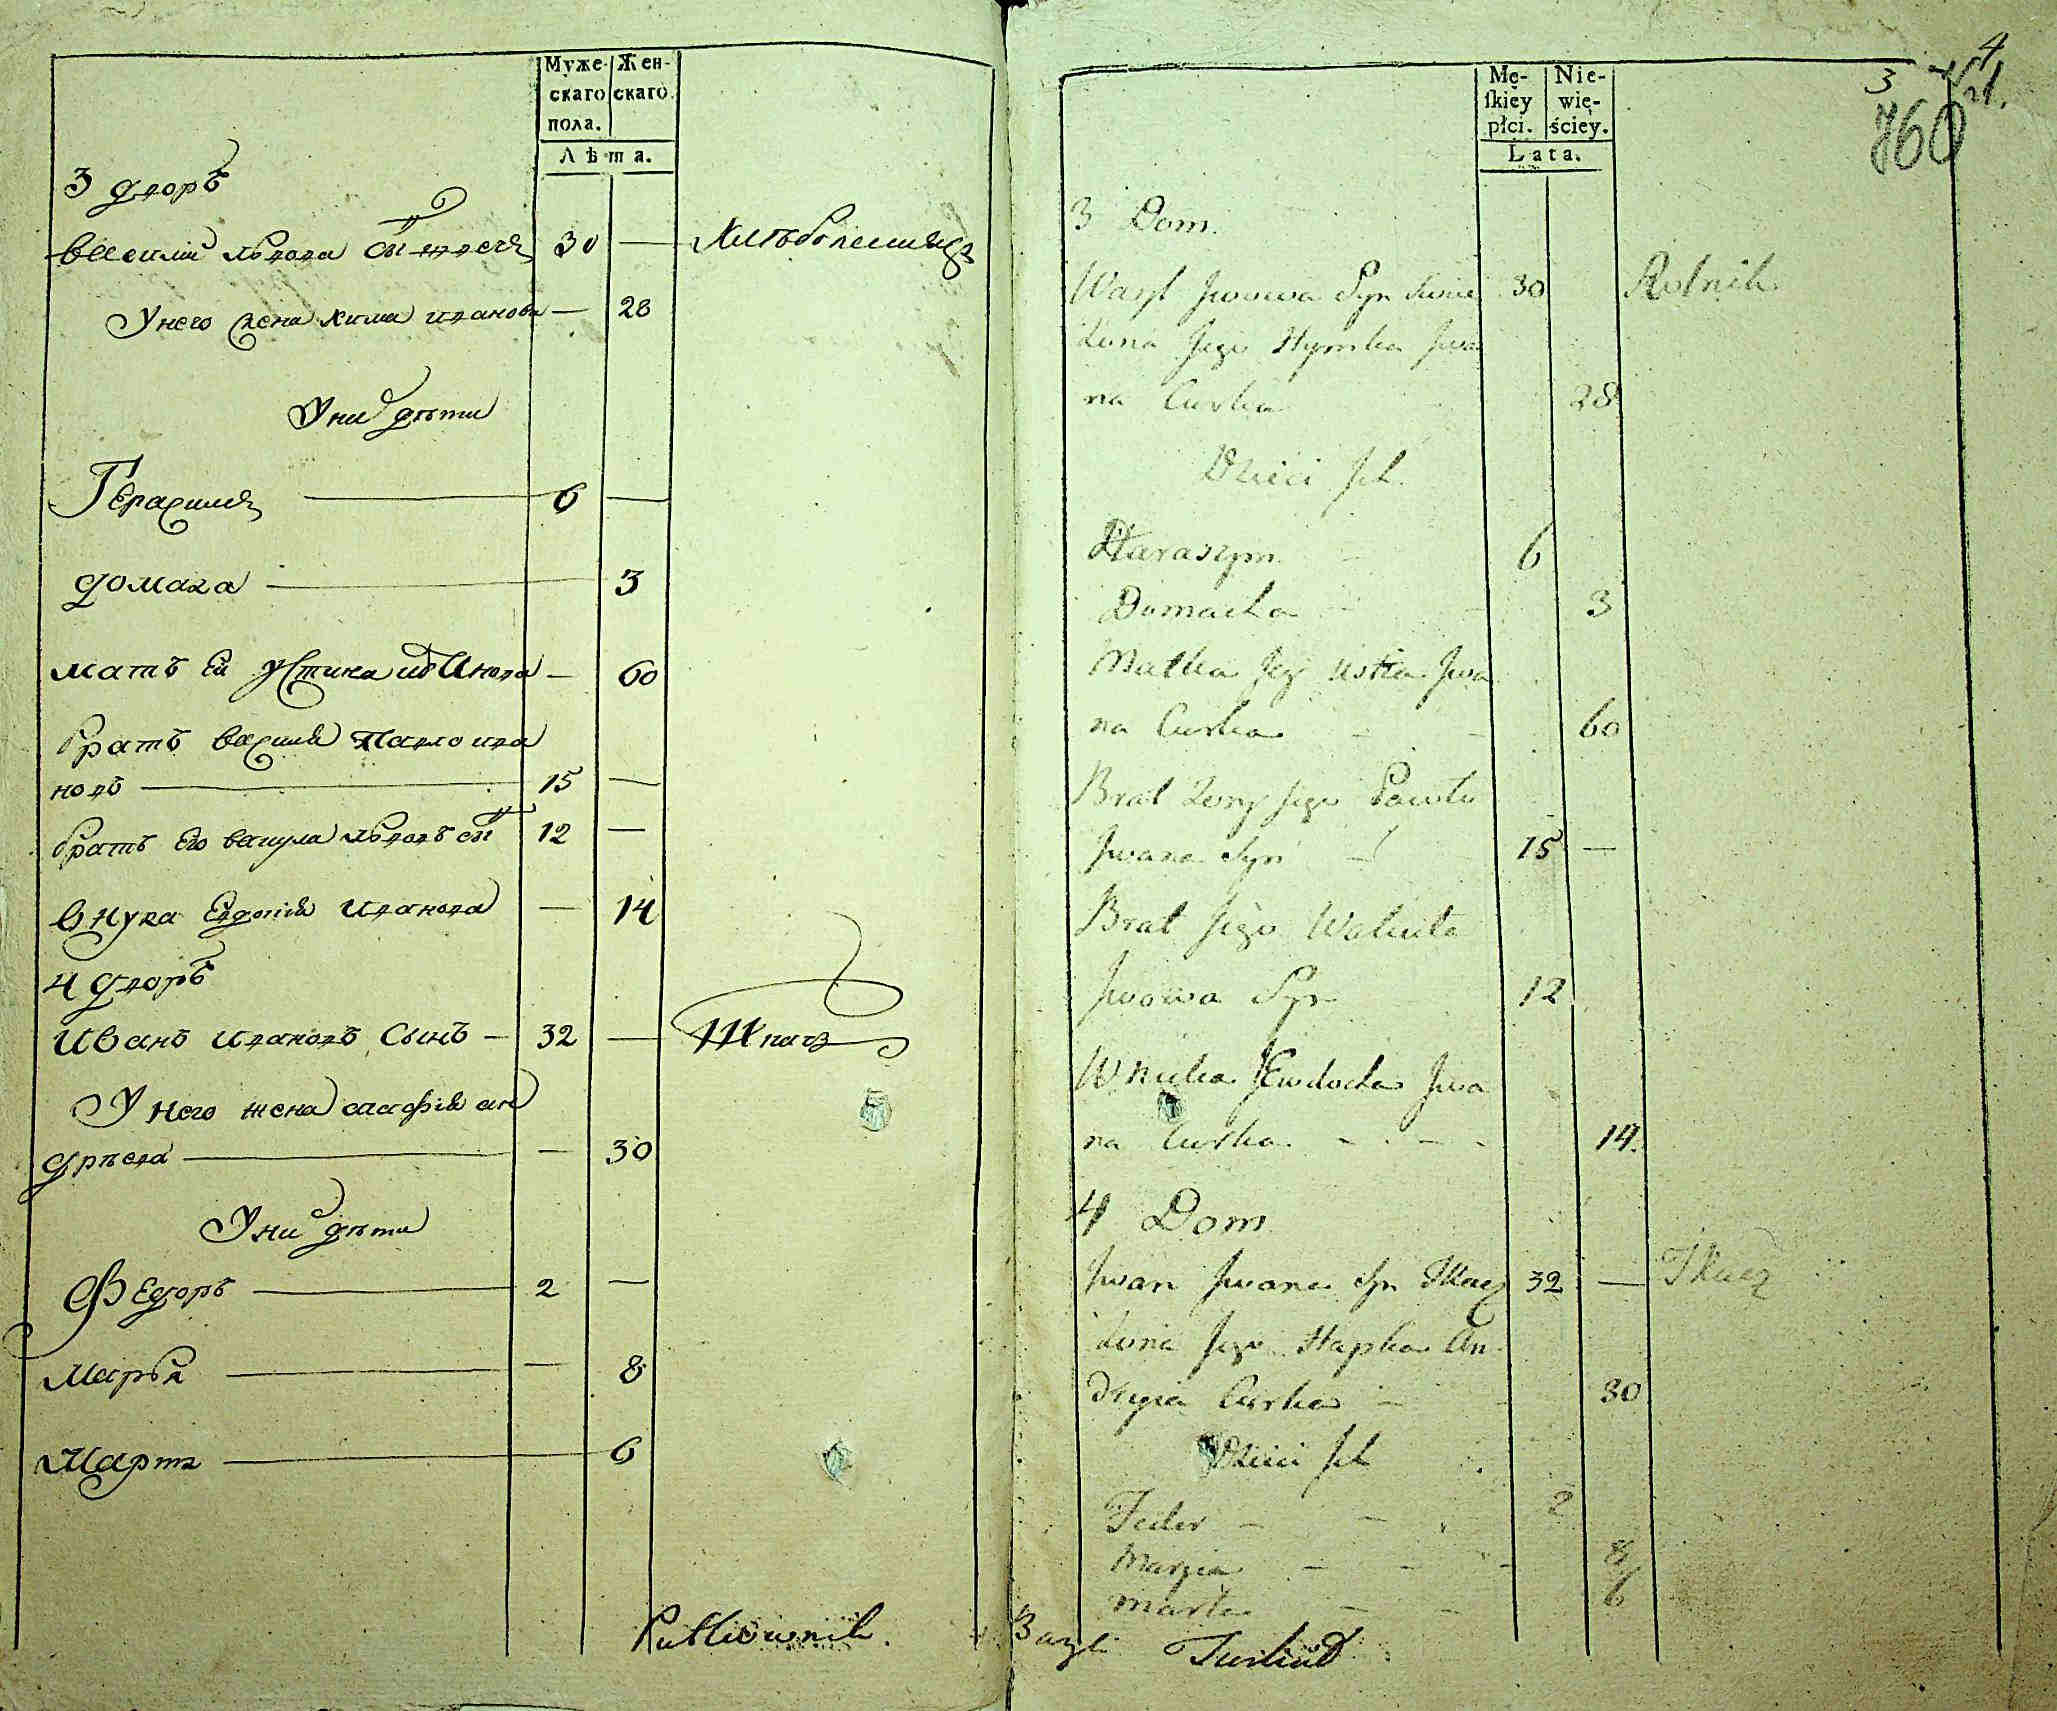 Муже-
скаго
пола.
Жен-
скаго
Лѣта.
3 дворъ
Василий 30 — Хлѣбопашецъ
У него жена Хима Иванова — 28
У ни дѣти
Герасимъ 6 —
Домаха 3
Мать Ей Устина — 60
братъ Василия Павло Ива
новъ 15 —
братъ Его 12 —
внука Евдокия Иванова — 14
4 дворъ
Иванъ Ивановъ Сынъ — 32 — Ткачъ
У него жена Агафия Ан
дрѣева — 30
У ни дѣти
Федоръ 2 —
Марья — 8
Марта 6
Pułkownik
Mę-
skiey
płci.
Nie-
wie-
ściey.
Lata.
3
4
21.
760
3 Dom
Wasyl Jwowa Syn 30 Rolnik
Żona Jego Hymka Jwa
na Curka 28
Dzieci Jch
Haraszym 6
Domacha 3
Matka Jego Ustia Jwa
na Curka 60
Brat Żony Jego Pawlu
Jwana Syn 15 —
Brat Jego
Jwowa Syn 12
Wnuka Jewdocha Jwa
na Curka 14
4 Dom
Jwan Jwana Syn Tkacz 32 — Tkacz
Żona Jego Hapka An
dryia Curka 30
Dzieci Jch
Feder 2
Maryia 8
Marta 6
Bazyli